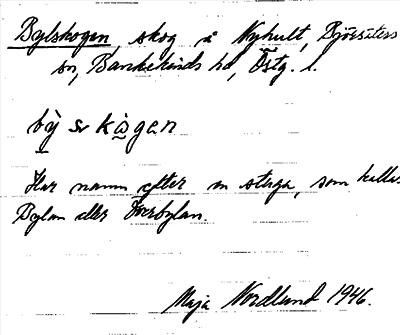 Bylskogen, skog å Nyhult, Björsäters
sn, Bankekinds hd, Östg. l.
Har namn efter en stuga, som kallas
Bylan eller Överbylan.
Maja Nordlund 1946.